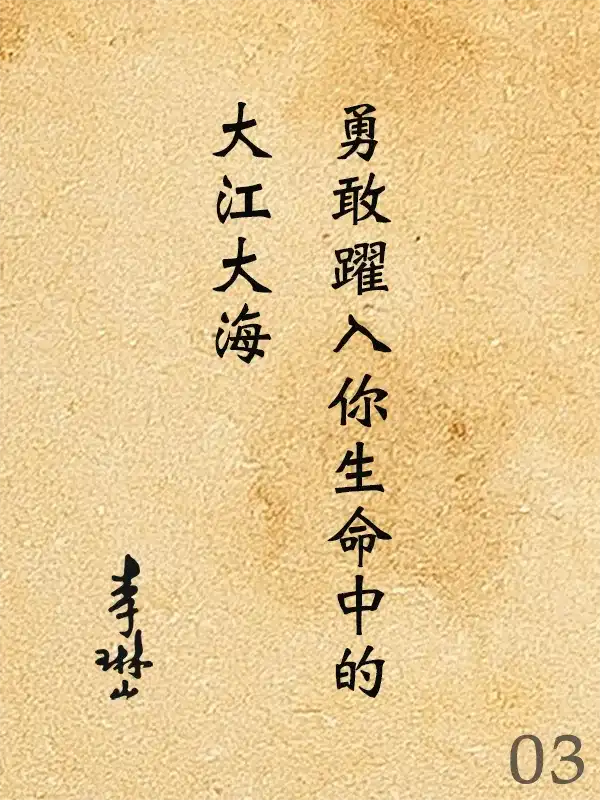 勇敢躍入你生命中的
大江大海
李琳山
03